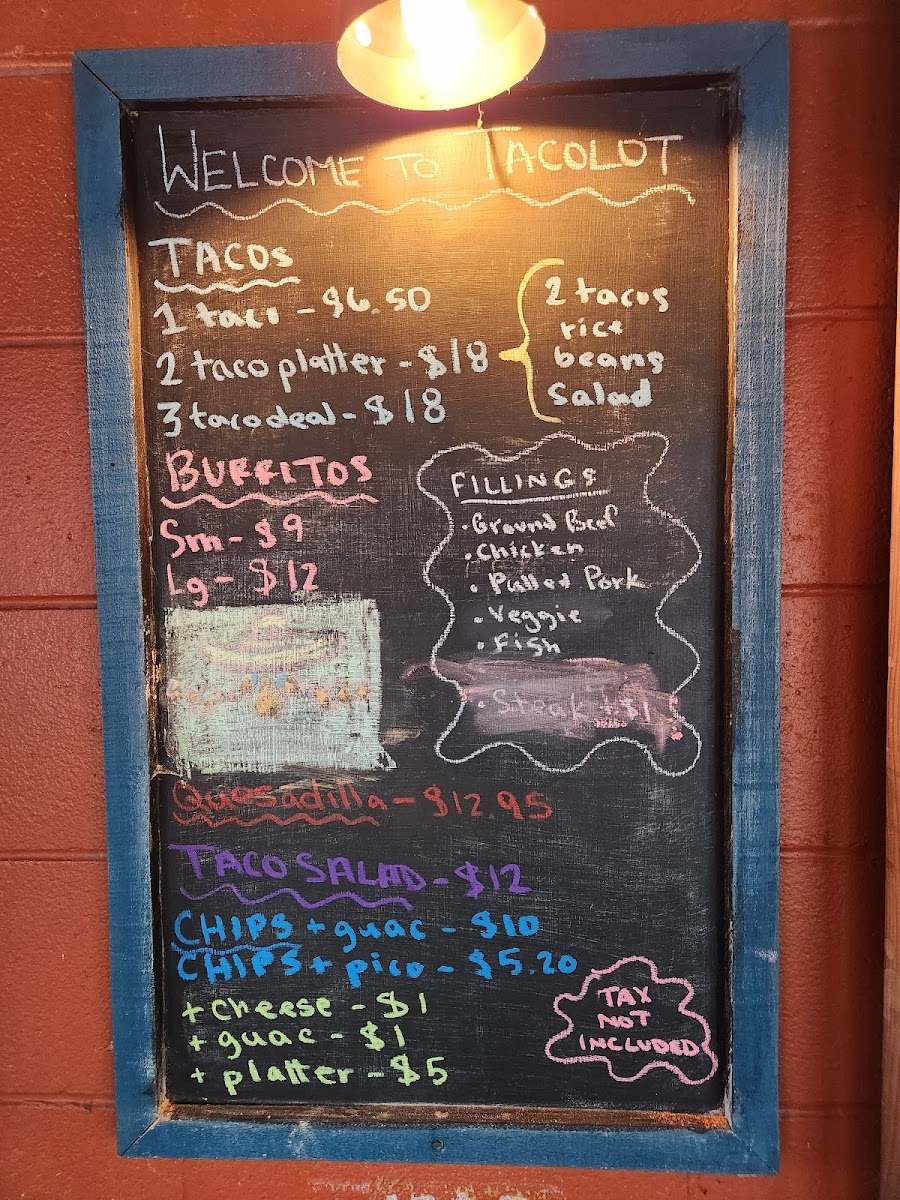 WELCOME TO TACOLOT
TACOS
1 taco - $6.50
2 taco platter - $18
3 taco deal - $18
2 tacos
rice
beans
salad
BURRITOS
Sm - $9
Lg - $12
FILLINGS
· Ground Beef
· Chicken
· Pulled Pork
· Veggie
· Fish
· Steak + $1
Quesadilla - $12.95
TACO SALAD - $12
CHIPS + guac - $10
CHIPS + pico - $5.20
+ cheese - $1
+ guac - $1
+ platter - $5
TAX
NOT
INCLUDED